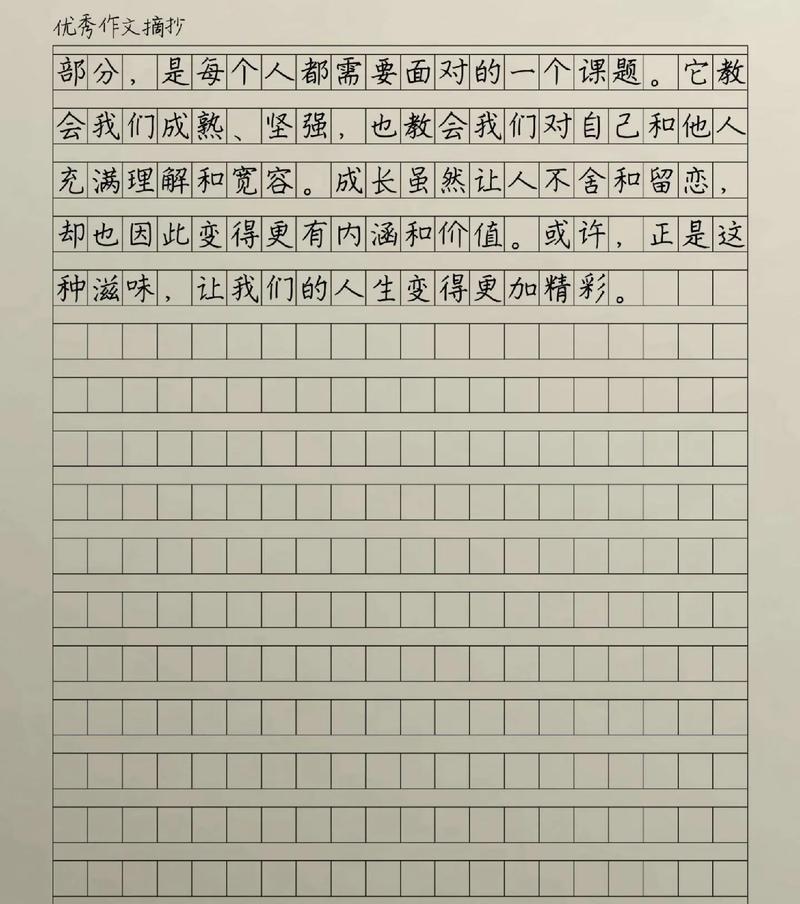 优秀作文摘抄
部分，是每个人都需要面对的一个课题。它教
会我们成熟、坚强，也教会我们对自己和他人
充满理解和宽容。成长虽然让人不舍和留恋，
却也因此变得更有内涵和价值。或许，正是这
种滋味，让我们的人生变得更加精彩。